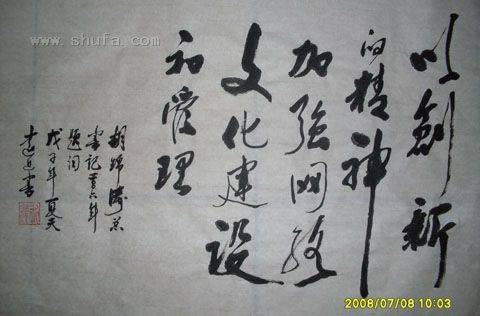 www.shufa.com
以創新
的精神
加强网络
文化建设
和管理
胡锦涛总
书记
题词
戊子年夏天
书
2008/07/08 10:03